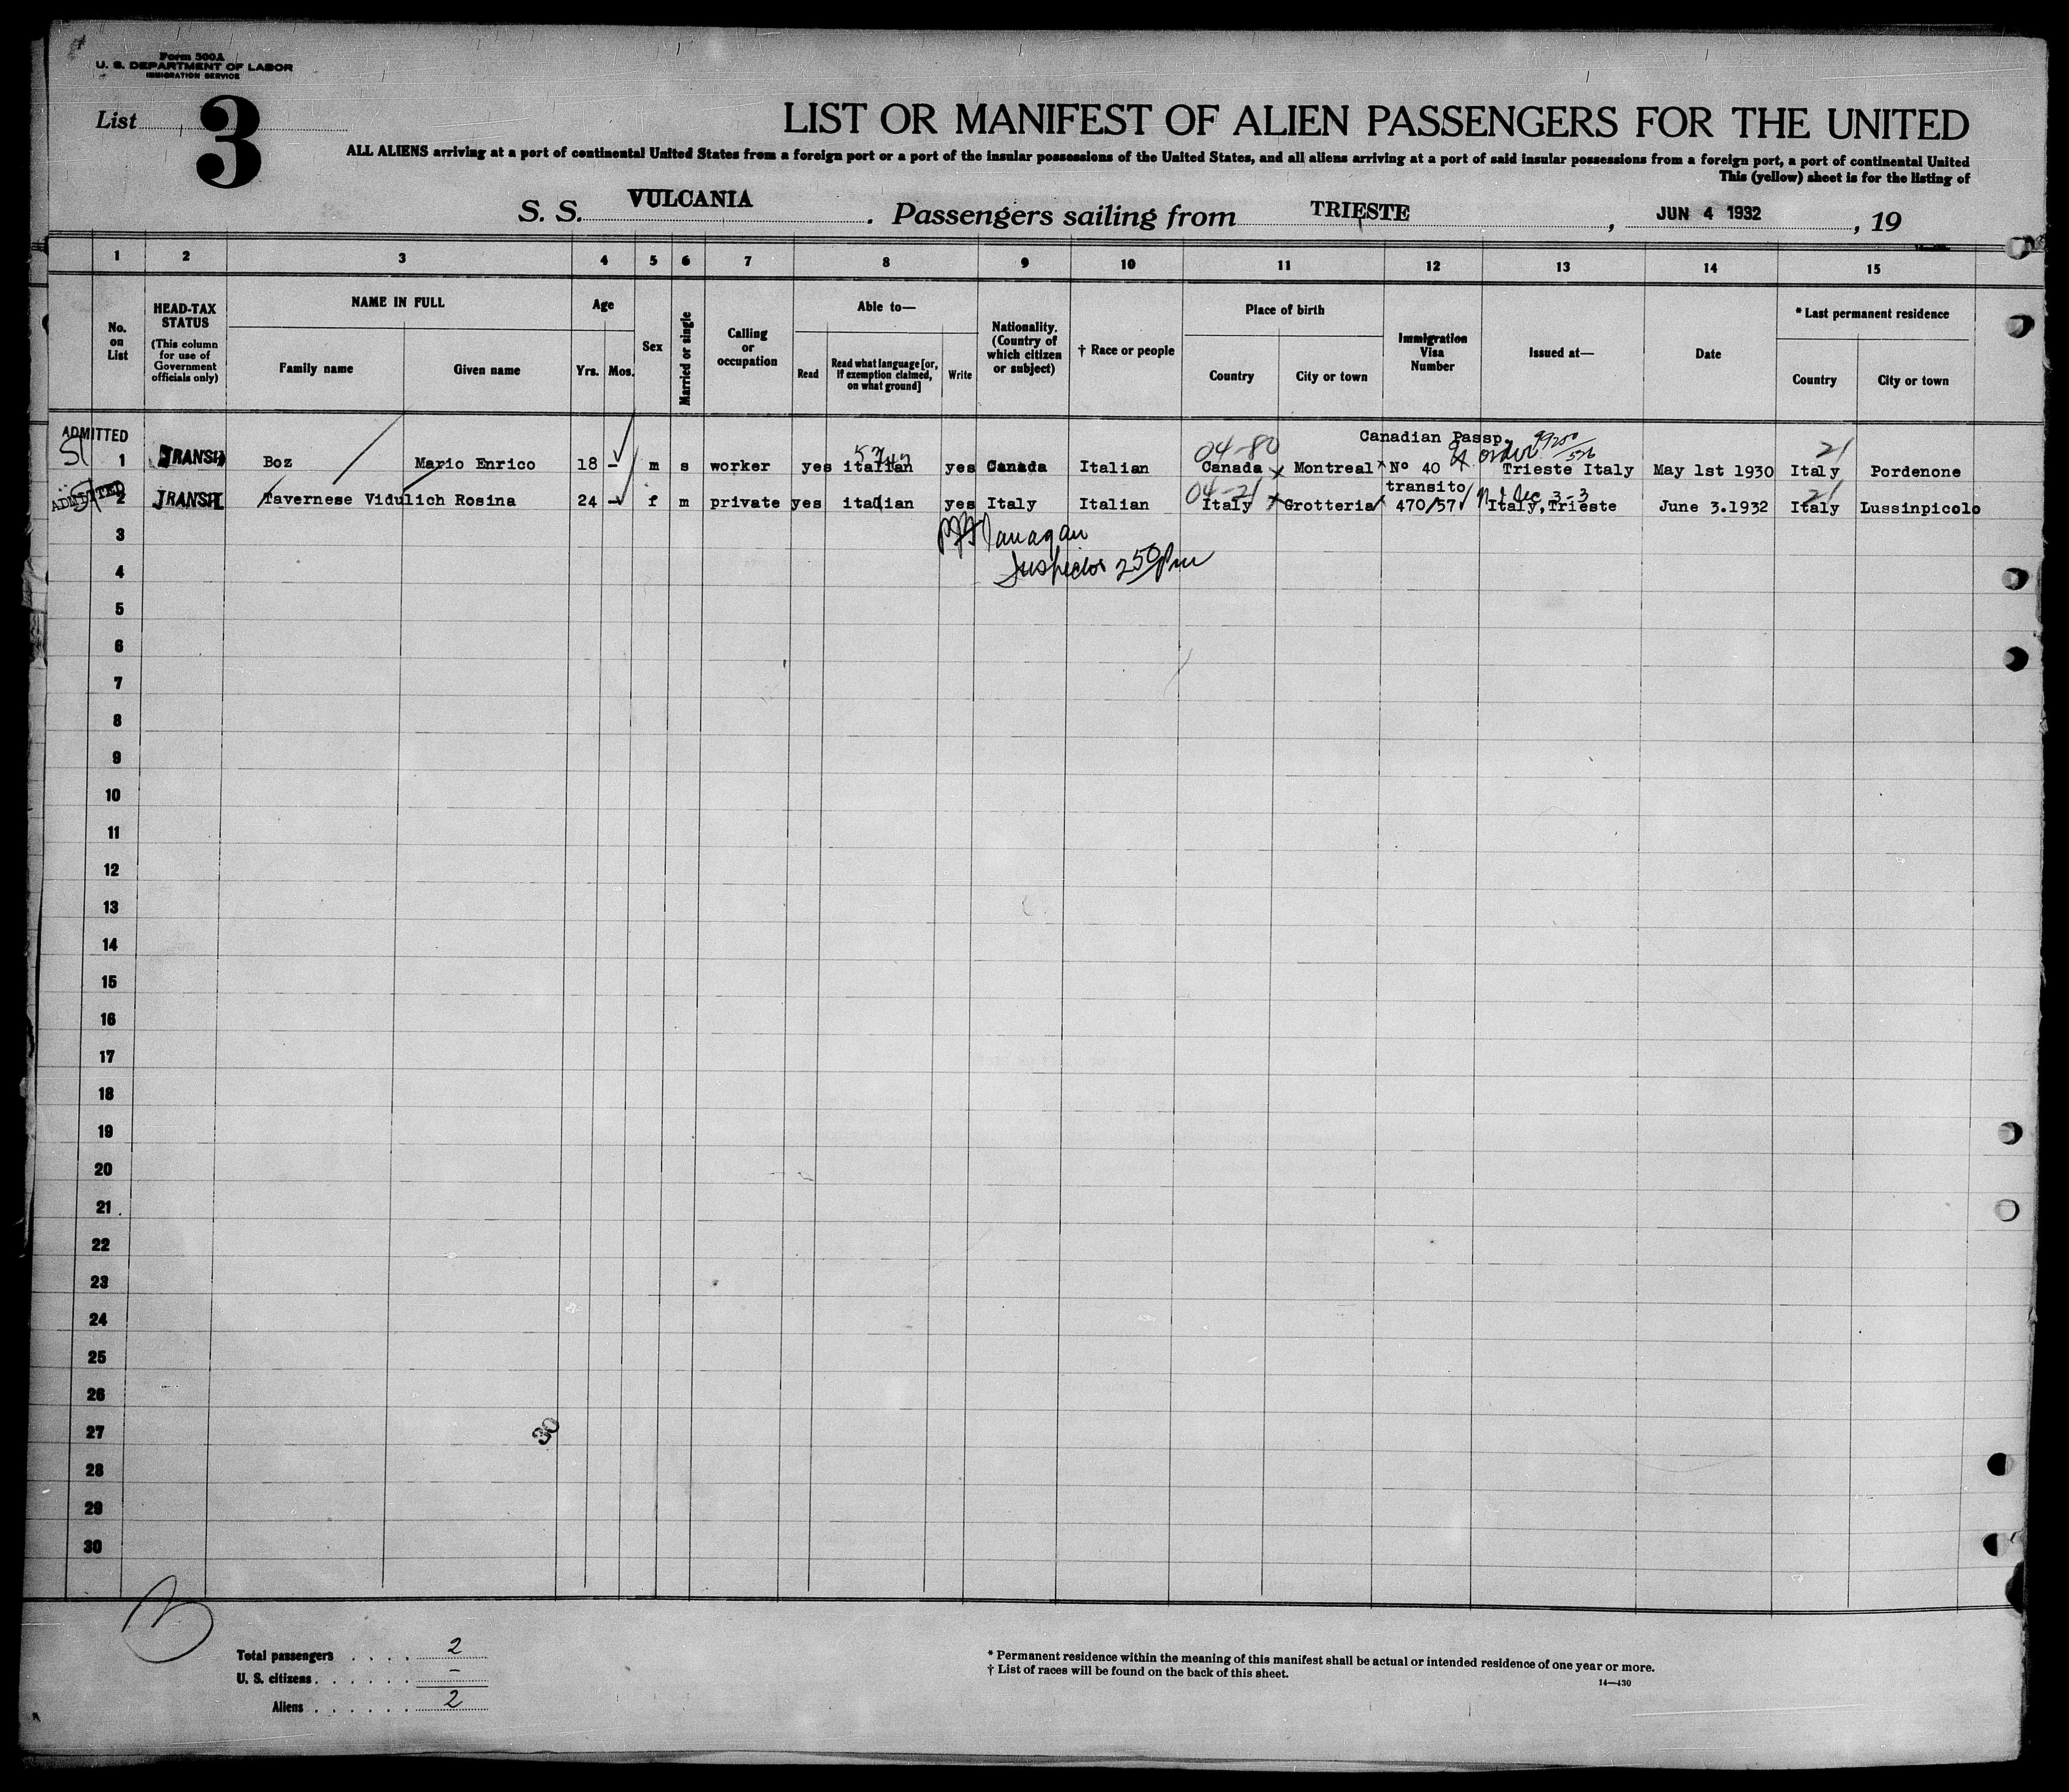 Form 500A
U. S. DEPARTMENT OF LABOR
IMMIGRATION SERVICE
List 3
LIST OR MANIFEST OF ALIEN PASSENGERS FOR THE UNITED
ALL ALIENS arriving at a port of continental United States from a foreign port or a port of the insular possessions of the United States, and all aliens arriving at a port of said insular possessions from a foreign port, a port of continental United
This (yellow) sheet is for the listing of
S. S. VULCANIA. Passengers sailing from TRIESTE, JUN 4 1932, 19
1 2 3 4 5 6 7 8 9 10 11 12 13 14 15
No. on List
HEAD-TAX STATUS (This column for use of Government officials only)
NAME IN FULL
Family name
Given name
Age
Yrs. Mos.
Sex
Married or single
Calling or occupation
Able to—
Read
Read what language [or, if exemption claimed, on what ground]
Write
Nationality. (Country of which citizen or subject)
† Race or people
Place of birth
Country
City or town
Immigration Visa Number
Issued at—
Date
* Last permanent residence
Country
City or town
ADMITTED 04-80 Canadian Passp. 21
1 TRANSIT Boz Mario Enrico 18 - m s worker yes italian yes Canada Italian Canada Montreal Nº 40 Trieste Italy May 1st 1930 Italy Pordenone
ADMITTED 04-21 transito 21
2 TRANSIT Tavernese Vidulich Rosina 24 - f m private yes italian yes Italy Italian Italy Grotteria 470/57 Italy, Trieste June 3.1932 Italy Lussinpicolo
3 Flanagan
4 Inspector 2 50 Pm
5
6
7
8
9
10
11
12
13
14
15
16
17
18
19
20
21
22
23
24
25
26
27 30
28
29
30
Total passengers . . . . 2
U. S. citizens . . . . . . –
Aliens . . . . . . 2
* Permanent residence within the meaning of this manifest shall be actual or intended residence of one year or more.
† List of races will be found on the back of this sheet.
14—430